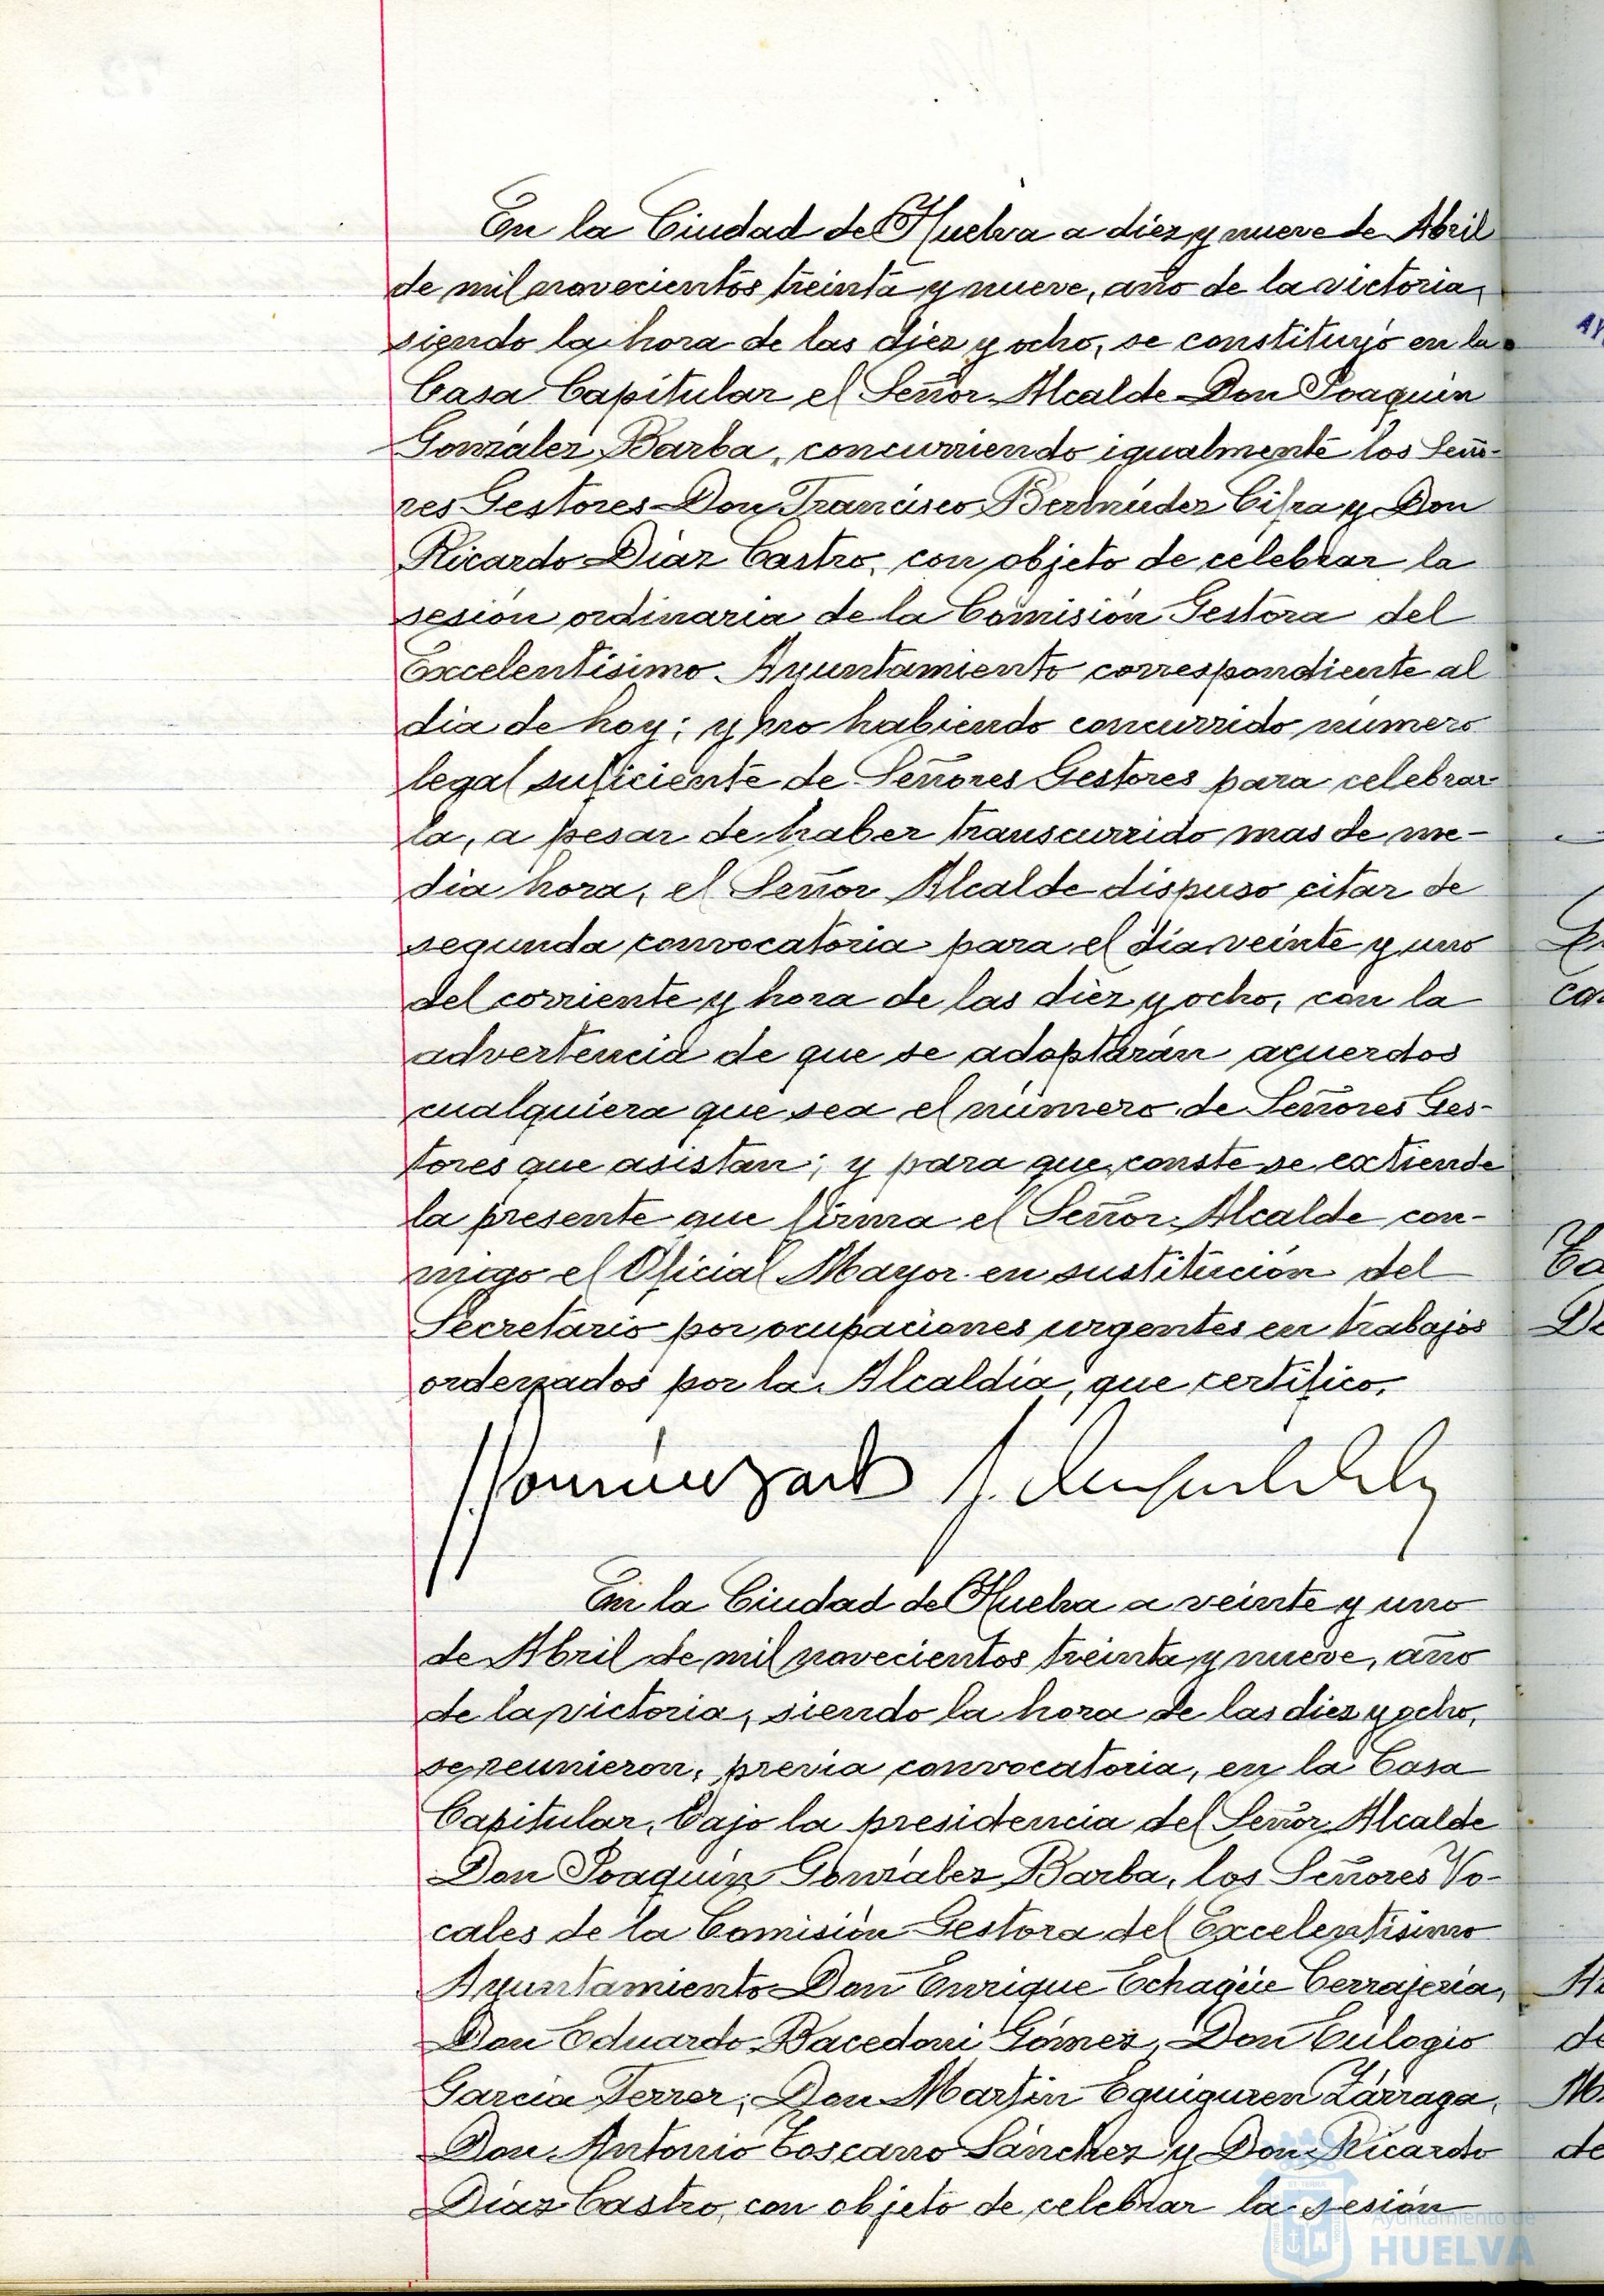 En la Ciudad de Huelva a diez y nueve de Abril
de mil novecientos treinta y nueve, año de la victoria,
siendo la hora de las diez y ocho, se constituyó en la
Casa Capitular el Señor Alcalde Don Joaquín
González Barba, concurriendo igualmente los Seño-
res Gestores Don Francisco Bermúdez Cifra y Don
Ricardo Díaz Castro, con objeto de celebrar la
sesión ordinaria de la Comisión Gestora del
Excelentísimo Ayuntamiento correspondiente al
dia de hoy; y no habiendo concurrido número
legal suficiente de Señores Gestores para celebrar
la, a pesar de haber transcurrido mas de me-
dia hora, el Señor Alcalde dispuso citar de
segunda convocatoria para el dia veinte y uno
del corriente y hora de las diez y ocho, con la
advertencia de que se adoptarán acuerdos
cualquiera que sea el número de Señores Ges-
tores que asistan; y para que conste se extiende
la presente que firma el Señor Alcalde con-
migo el Oficial Mayor en sustitución del
Secretario por ocupaciones urgentes en trabajos
ordenados por la Alcaldía, que certifico.
En la Ciudad de Huelva a veinte y uno
de Abril de mil novecientos treinta y nueve, año
de la victoria, siendo la hora de las diez y ocho,
se reunieron, previa convocatoria, en la Casa
Capitular, bajo la presidencia del Señor Alcalde
Don Joaquín González Barba, los Señores Vo-
cales de la Comisión Gestora del Excelentísimo
Ayuntamiento Don Enrique Echagüe Cerrajería,
Don Eduardo Bacedoni Gómez, Don Eulogio
García Ferrer, Don Martín Eguiguren Zárraga,
Don Antonio Toscano Sánchez y Don Ricardo
Díaz Castro, con objeto de celebrar la sesión
Ayuntamiento de
HUELVA